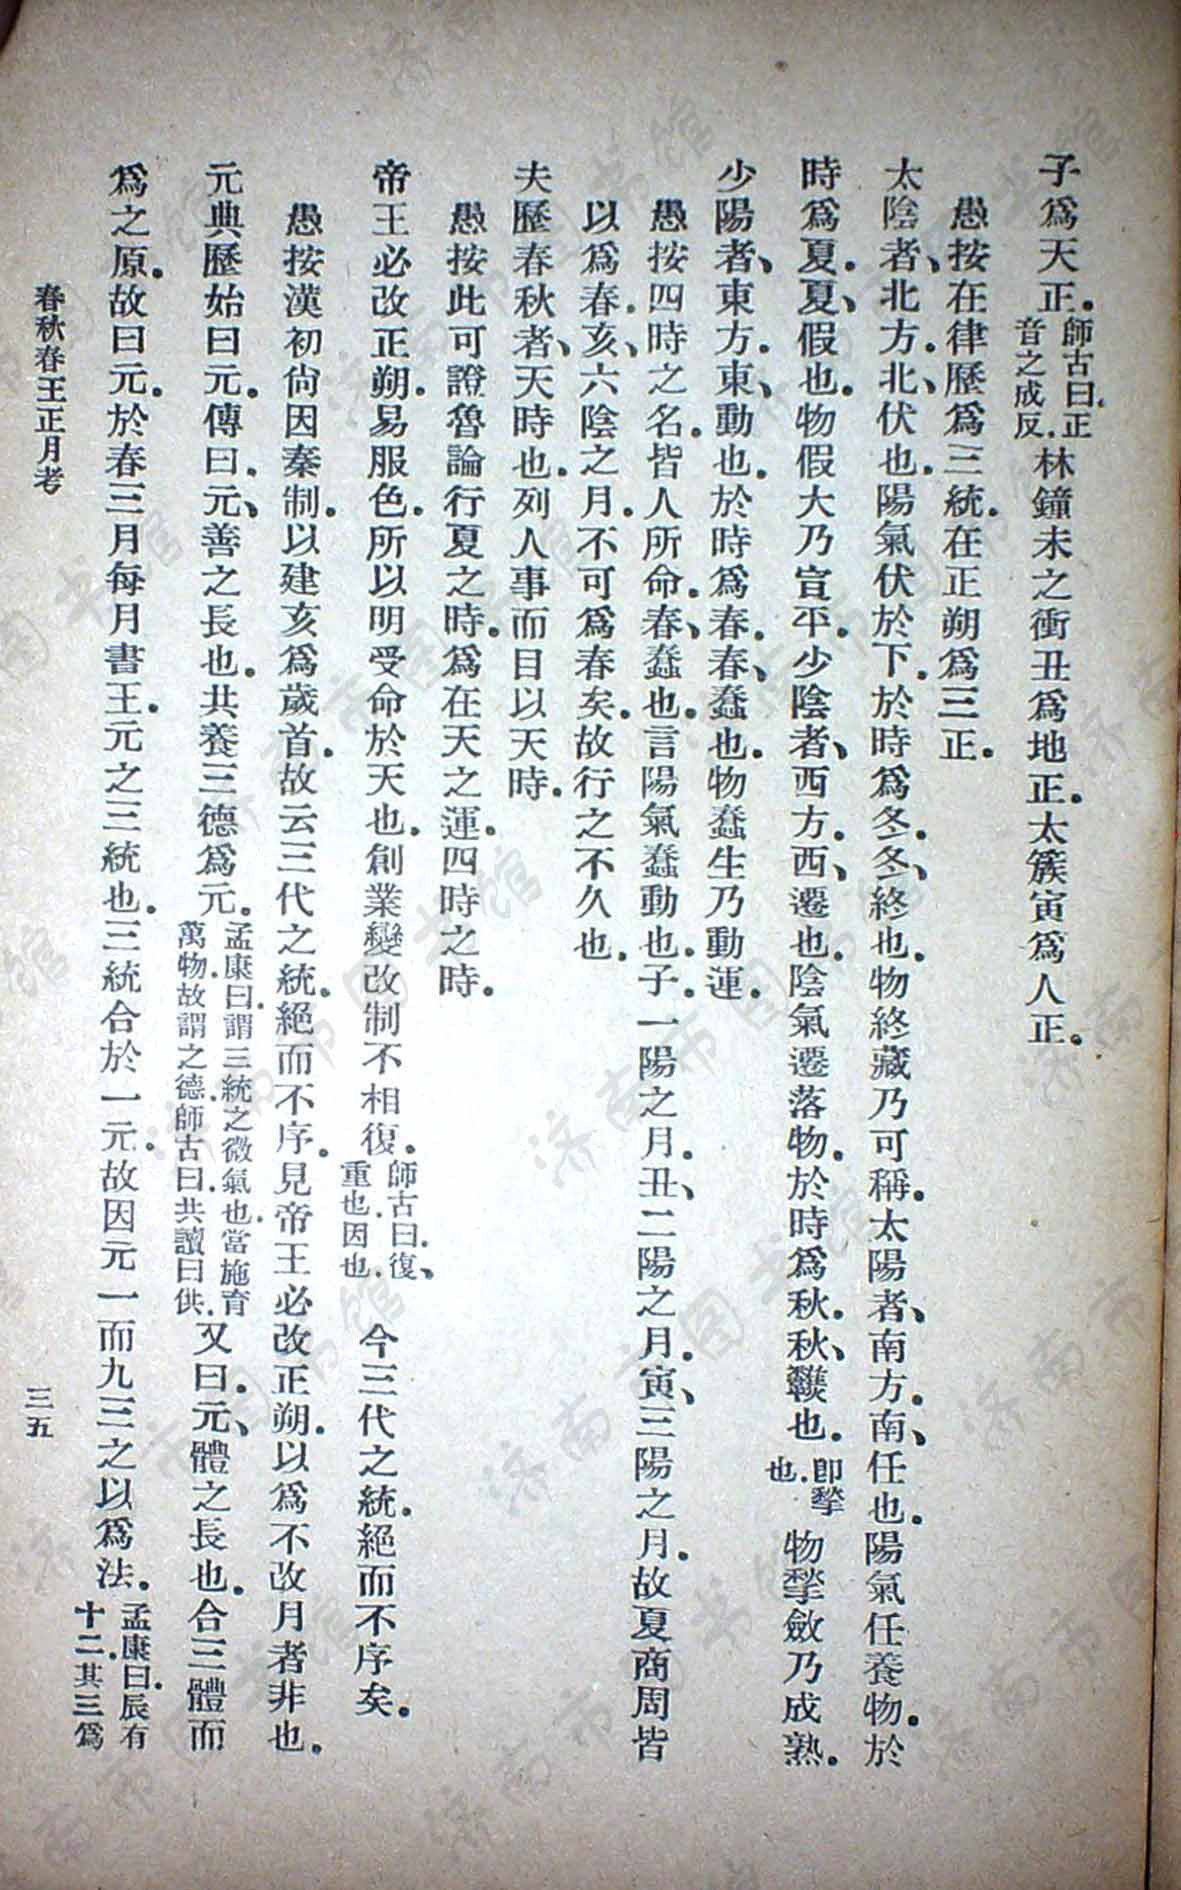 子爲天正。師古曰。正音之成反。林鐘未之衝丑爲地正。太簇寅爲人正。
愚按在律歷爲三統。在正朔爲三正。
太陰者、北方。北、伏也。陽氣伏於下。於時爲冬。冬、終也。物終藏乃可稱。太陽者、南方。南、任也。陽氣任養物。於
時爲夏。夏、假也。物假大乃宣平。少陰者、西方。西、遷也。陰氣遷落物。於時爲秋。秋、䪒也。即揫也。物揫斂乃成熟。
少陽者、東方。東、動也。於時爲春。春、蠢也。物蠢生乃動運。
愚按四時之名。皆人所命。春、蠢也。言陽氣蠢動也。子、一陽之月。丑、二陽之月。寅、三陽之月。故夏商周皆
以爲春。亥、六陰之月。不可爲春矣。故行之不久也。
夫歷春秋者、天時也。列人事而目以天時。
愚按此可證魯論行夏之時。爲在天之運。四時之時。
帝王必改正朔。易服色。所以明受命於天也。創業變改制不相復。師古曰。復、重也。因也。今三代之統。絕而不序矣。
愚按漢初尙因秦制。以建亥爲歲首。故云三代之統。絕而不序。見帝王必改正朔。以爲不改月者非也。
元典歷始曰元。傳曰。元、善之長也。共養三德爲元。孟康曰。謂三統之微氣也。當施育萬物。故謂之德。師古曰。共讀曰供。又曰。元、體之長也。合三體而
爲之原。故曰元。於春三月每月書王。元之三統也。三統合於一元。故因元一而九三之以爲法。孟康曰。辰有十二。其三爲
春秋春王正月考
三五